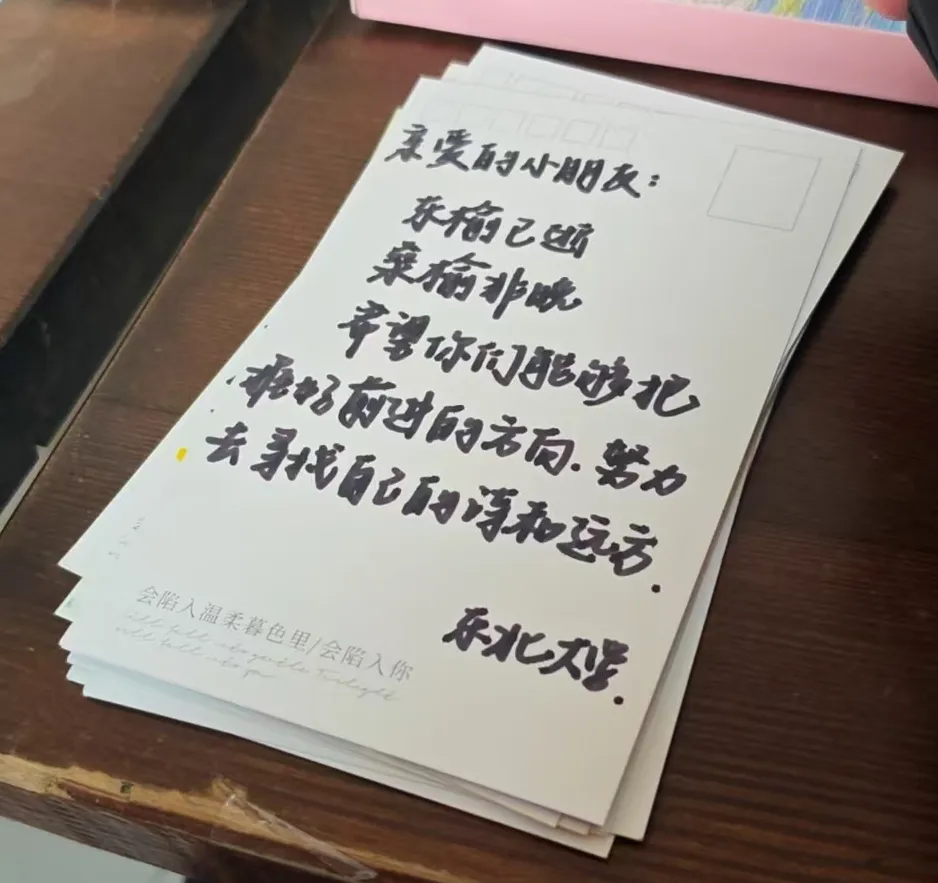 亲爱的小朋友:
东榆已逝
桑榆非晚
希望你们能够把
握好前进的方向.努力
去寻找自己的诗和远方.
东北大学.
会陷入温柔暮色里/会陷入你
will fall into gentle Twilight
will fall into
you